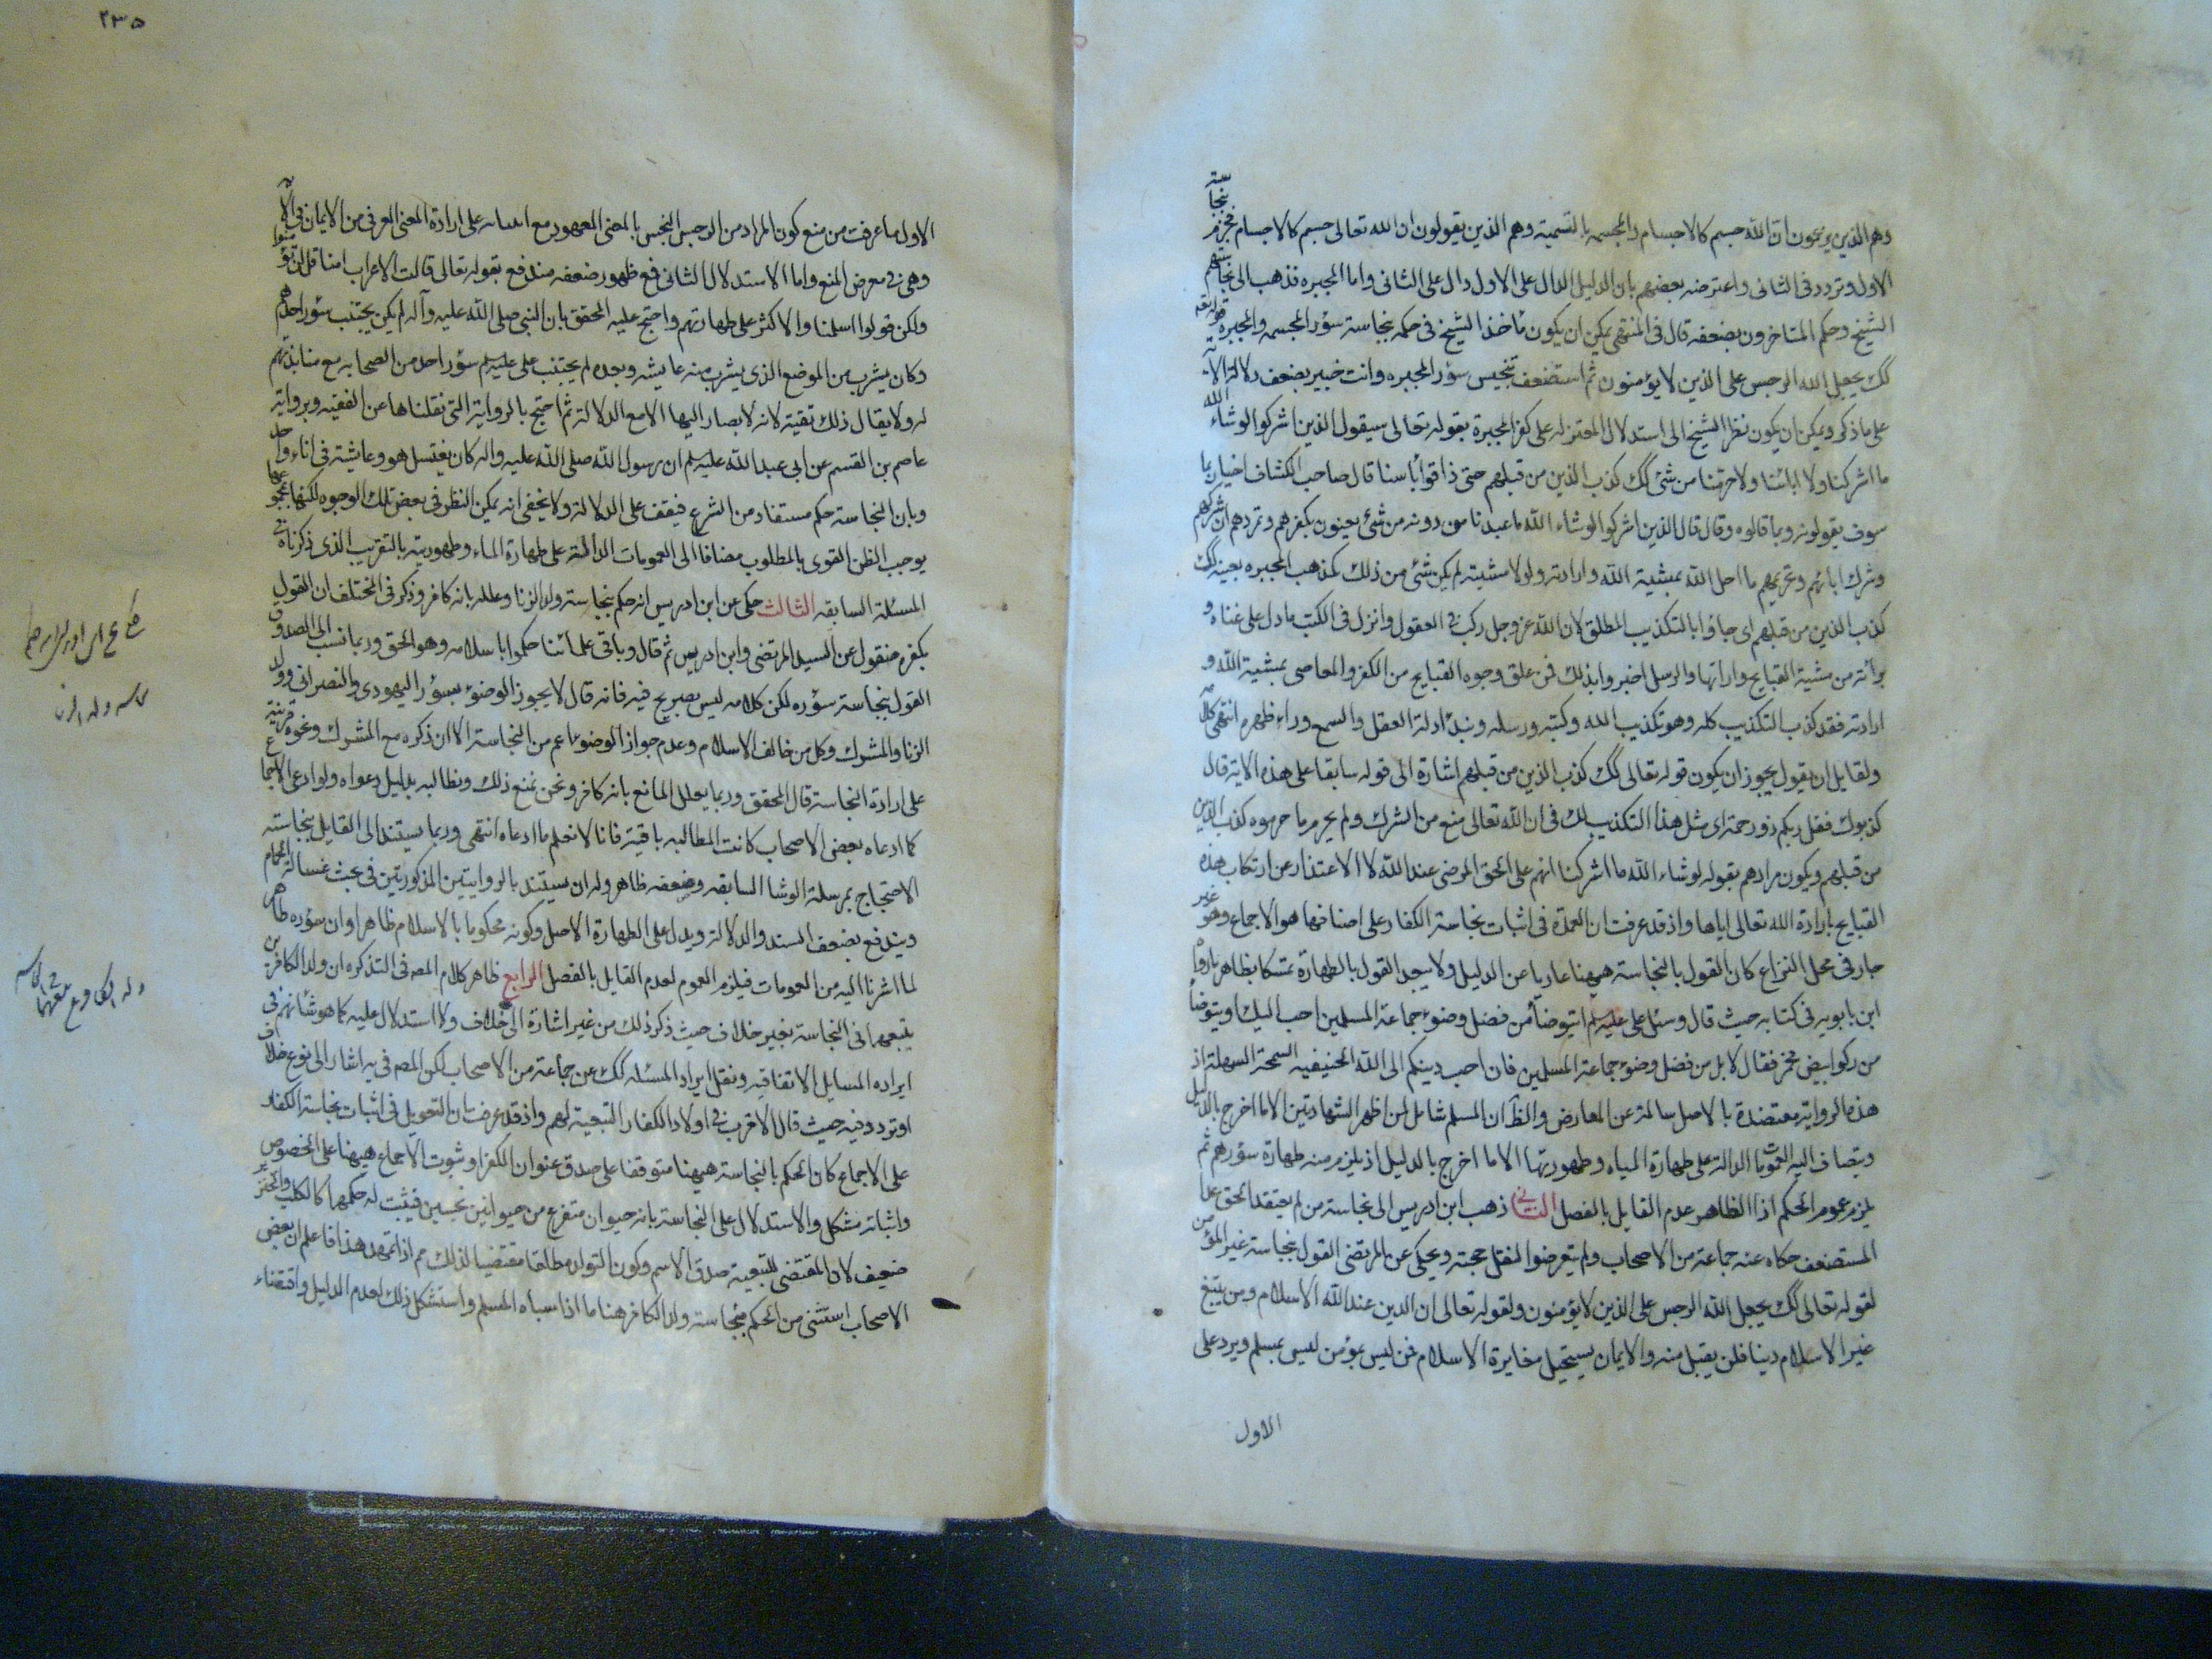 وهم الذين يزعمون ان الله جسم كالاجسام والمجسمه بالتسمية وهم الذين يقولون ان الله تعالى جسم كالاجسام فجزم بنجاسته
الاول وتردد فى الثانى واعترضه بعضهم بان الدليل الدال على الاول دال على الثانى واما المجبره فذهب الى نجاستهم
الشيخ وحكم المتاخرون بضعفه قال فى المنتهى يمكن ان يكون مأخذ الشيخ فى حكمه بنجاسة سؤر المجسمه والمجبره قوله تعه
كك يجعل الله الرجس على الذين لا يؤمنون ثم استضعف تنجيس سؤر المجبره وانت خبير بضعف دلالة الاية
على ما ذكر ويمكن ان يكون نظر الشيخ الى استدلال المعتزله على كفر المجبرة بقوله تعالى سيقول الذين اشركوا لو شاء الله
ما اشركنا ولا اباءنا ولا حرمنا من شئ كك كذب الذين من قبلهم حتى ذاقوا بأسنا قال صاحب الكشاف اخبار بما
سوف يقولونه وبما قالوه وقال قال الذين اشركوا لو شاء الله ما عبدنا من دونه من شئ يعنون بكفرهم وتمردهم ان شركهم
وشرك ابائهم وتحريمهم ما احل الله بمشية الله وارادته ولولا مشيته لم يكن شئ من ذلك كمذهب المجبره بعينه كك
كذب الذين من قبلهم اى جاؤا بالتكذيب المطلق لان الله عز وجل ركب فى العقول وانزل فى الكتب ما دل على غناه و
برائته من مشية القبايح وارادتها والرسل اخبروا بذلك فمن علق وجوه القبايح من الكفر والمعاصى بمشية الله و
ارادته فقد كذب التكذيب كله وهو تكذيب الله وكتبه ورسله ونبذ ادلة العقل والسمع وراء ظهره انتهى كلامه
ولقايل ان يقول يجوز ان يكون قوله تعالى كك كذب الذين من قبلهم اشارة الى قوله سابقا على هذه الاية قال
كذبوك فقل ربكم ذو رحمة اى مثل هذا التكذيب لك فى ان الله تعالى منع من الشرك ولم يحرم ما حرموه كذب الذين
من قبلهم ويكون مرادهم بقوله لو شاء الله ما اشركنا انهم على الحق المرضى عند الله لا الاعتذار عن ارتكاب هذه
القبايح بارادة الله تعالى اياها واذ قد عرفت ان العمدة فى اثبات نجاسة الكفار على اصنافها هو الاجماع وهو غير
جار فى محل النزاع كان القول بالنجاسة هيهنا عاريا عن الدليل ولا يبعد القول بالطهارة تمسكا بظاهر ما رواه
ابن بابويه فى كتابه حيث قال وسئل على عليه السلم ايتوضأ من فضل وضوء جماعة المسلمين احب اليك او يتوضأ
من ركو ابيض مخمر فقال لا بل من فضل وضوء جماعة المسلمين فان احب دينكم الى الله الحنيفيه السمحة السهلة اذ
هذه الرواية معتضدة بالاصل سالمة عن المعارض والظ ان المسلم شامل لمن اظهر الشهادتين الا ما اخرج بالدليل
ويضاف اليه العمومات الدالة على طهارة المياه وطهوريتها الا ما اخرج بالدليل اذ يلزم منه طهارة سؤرهم ثم
يلزم عموم الحكم اذ الظاهر عدم القايل بالفصل الثانى ذهب ابن ادريس الى نجاسة من لم يعتقد الحق عدا
المستضعف حكاه عنه جماعة من الاصحاب ولم يتعرضوا لنقل حجته ويحكى عن المرتضى القول بنجاسة غير المؤمن
لقوله تعالى كك يجعل الله الرجس على الذين لا يؤمنون ولقوله تعالى ان الدين عند الله الاسلام ومن يبتغ
غير الاسلام دينا فلن يقبل منه والايمان يستحيل مغايرة الاسلام فمن ليس بمؤمن ليس بمسلم ويرد على
الاول
٢٣٥
الاول ما عرفت من منع كون المراد من الرجس النجس بالمعنى المعهود مع على ارادة المعنى العرفى من الايمان فى الاية
وهى فى معرض المنع واما الاستدلال الثانى فمع ظهور ضعفه مندفع بقوله تعالى قالت الاعراب امنا قل لن تؤمنوا
ولكن قولوا اسلمنا والاكثر على طهارتهم واحتج عليه المحقق بان النبى صلى الله عليه وآله لم يكن يجتنب سؤر احدهم
وكان يشرب من الموضع الذى يشرب منه عايشه وبعده لم يجتنب على عليه السلم سؤر احد من الصحابه مع منابذتهم
له ولا يقال ذلك تقية لانه لا يصار اليها الا مع الدلالة ثم احتج بالرواية التى نقلناها عن الفقيه وبرواية
عاصم بن القسم عن ابى عبد الله عليه السلم ان رسول الله صلى الله عليه واله كان يغتسل هو وعايشة فى اناء واحد
وبان النجاسة حكم مستفاد من الشرع فيقف على الدلالة ولا يخفى انه يمكن النظر فى بعض تلك الوجوه لكنها بمجموعها
يوجب الظن القوى بالمطلوب مضافا الى العمومات الدالة على طهارة الماء وطهوريته بالتقريب الذى ذكرناه فى
المسئلة السابقه الثالث حكى عن ابن ادريس انه حكم بنجاسة ولد الزنا وعلله بانه كافر وذكر فى المختلف ان القول
بكفره منقول عن السيد المرتضى وابن ادريس ثم قال وباقى علمائنا حكموا باسلامه وهو الحق وربما نسب الى الصدوق
القول بنجاسة سؤره لكن كلامه ليس بصريح فيه فانه قال لا يجوز الوضوء بسؤر اليهودى والنصرانى وولد
الزنا والمشرك وكل من خالف الاسلام وعدم جواز الوضوء اعم من النجاسة الا ان ذكره مع المشرك ونحوه قرينة
على ارادة النجاسة قال المحقق وربما يعلل المانع بانه كافر ونحن نمنع ذلك ونطالبه بدليل دعواه ولو ادعى الاجماع
كما ادعاه بعض الاصحاب كانت المطالبه باقية فانا لا نعلم ما ادعاه انتهى وربما يستند الى القايل بنجاسته
الاحتجاج بمرسلة الوشا السابقه وضعفه ظاهر وله ان يستند بالروايتين المذكورتين فى بحث غسالة الحمام
ويندفع بضعف السند والدلالة ويدل على الطهارة الاصل وكونه محكوما بالاسلام ظاهرا وان سؤره طاهر
لما اشرنا اليه من العمومات فيلزم العموم لعدم القايل بالفصل الرابع ظاهر كلام المصه فى التذكره ان ولد الكافرين
يتبعهما فى النجاسة بغير خلاف حيث ذكر ذلك من غير اشارة الى خلاف ولا استدلال عليه كما هو شأنهم فى
ايراده المسايل الاتفاقيه ونقل ايراد المسئله كك عن جماعة من الاصحاب لكن المصه فى يه اشار الى نوع خلاف
او تردد فيه حيث قال الاقرب فى اولاد الكفار التبعية لهم واذ قد عرفت ان التعويل فى اثبات نجاسة الكفار
على الاجماع كان الحكم بالنجاسة هيهنا متوقفا على صدق عنوان الكفر او ثبوت الاجماع هيهنا على الخصوص
واثباته مشكل والاستدلال على النجاسة بانه حيوان متفرع من حيوانين نجسين فيثبت له حكمهما كالكلب والخنزير
ضعيف لان المقتضى للتبعية صدق الاسم وكون التولد مطلقا مقتضيا لذلك مم اذا تمهد هذا فاعلم ان بعض
الاصحاب استثنى من الحكم بنجاسة ولد الكافر هنا ما اذا سباه المسلم واستشكل ذلك لعدم الدليل واقتفاء